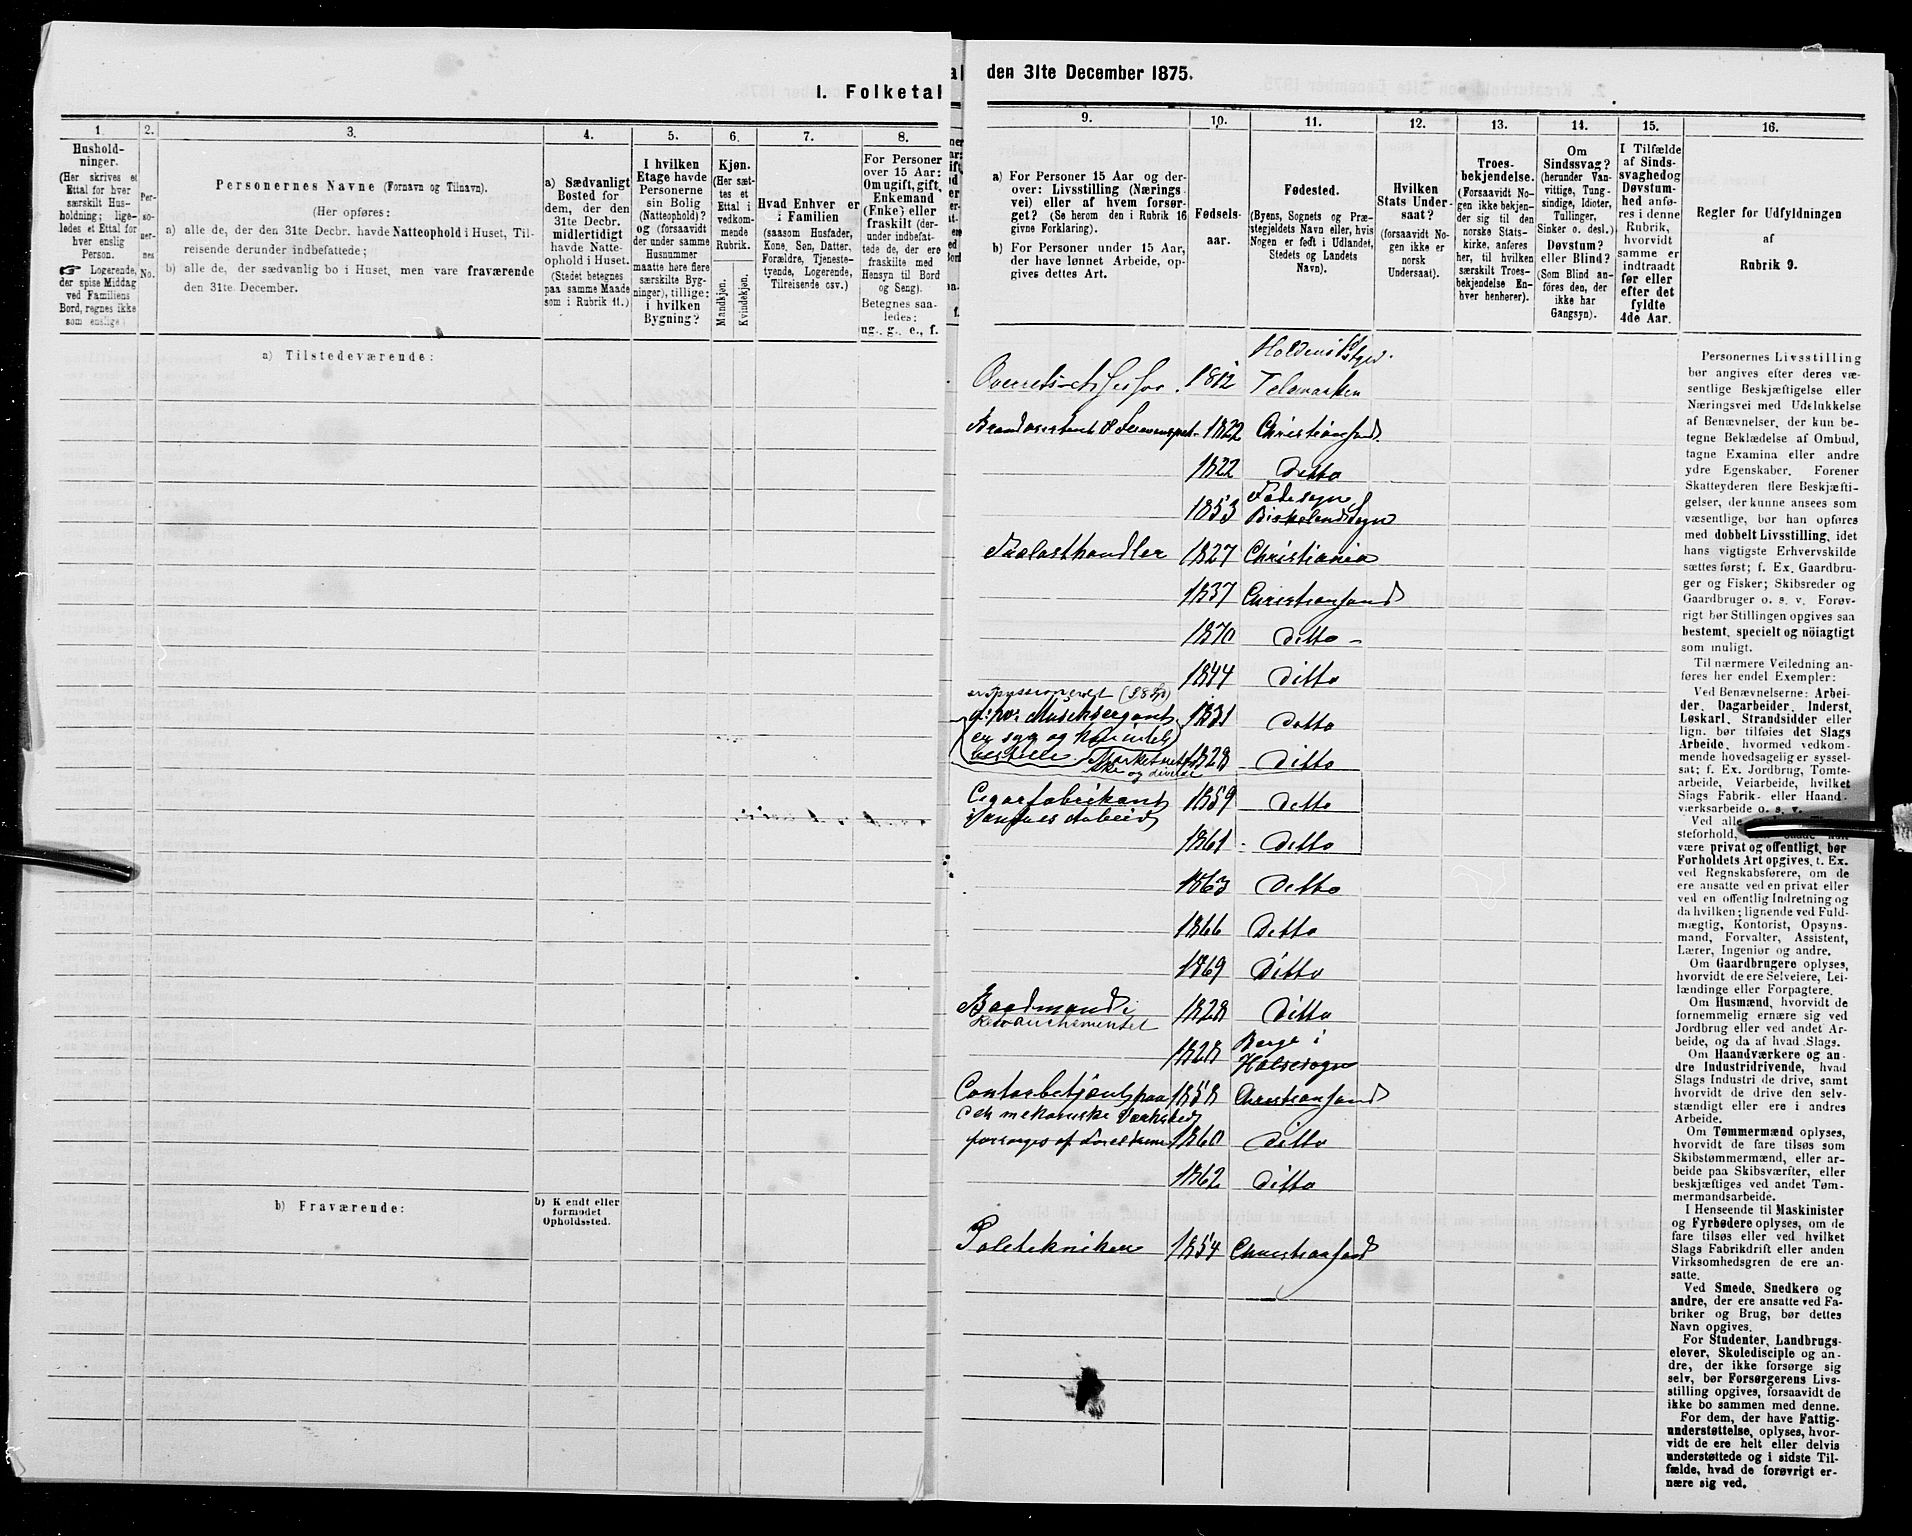 1. Folketal
den 31te December 1875.
1.
2.
3.
4.
5.
6.
7.
8.
Hushold-
ninger.
(Her skrives et
Ettal for hver
særskilt Hus-
holdning; lige-
ledes et Ettal for
hver enslig
Person.
Logerende,
der spise Middag
ved Familiens
Bord, regnes ikke
som enslige.)
Per-
so-
ner-
nes
No.
Personernes Navne (Fornavn og Tilnavn).
(Her opføres:
a) alle de, der den 31te Decbr. havde Natteophold i Huset, Til-
reisende derunder indbefattede;
b) alle de, der sædvanlig bo i Huset, men vare fraværende
den 31te. December.
a) Sædvanligt
Bosted for
dem, der den
31te Decbr.
midlertidigt
havde Natte-
ophold i Huset.
(Stedet betegnes
paa samme Maade
som i Rubrik 11.)
I hvilken
Etage havde
Personerne
sin Bolig
(Natteophold)?
og (forsaavidt
der under samme
Husnummer
maatte høre flere
særskilte Byg-
ninger), tillige:
i hvilken
Bygning?
Kjøn.
(Her sæt-
tes et
Ettal i
vedkom-
mende
Rubrik.
Mandkjøn.
Kvindekjøn.
Hvad Enhver er
i Familien
(saasom Husfader,
Kone, Søn, Datter,
Forældre, Tjeneste-
tyende, Logerende,
Tilreisende osv.)
For Personer
over 15 Aar:
Om ugift, gift,
Enkemand
(Enke) eller
fraskilt (der-
under indbefat-
tede de, der ere
fraskilte med
Hensyn til Bord
og Seng).
Betegnes saa-
ledes:
ug., g., e., f.
a) Tilstedeværende:
b) Fraværende:
b) Kjendt eller
formodet
Opholdssted.
9.
10.
11.
12.
13.
14.
15.
16.
a) For Personer 15 Aar og der-
over: Livsstilling (Nærings
vei) eller af hvem forsør-
get? (Se herom den i Rubrik 16
givne Forklaring).
b) For Personer under 15 Aar,
der have lønnet Arbeide, op-
gives dettes Art.
Fødsels-
aar.
Fødested.
(Byens, Sognets og Præ-
stegjeldets Navn eller, hvis
Nogen er født i Udlandet,
Stedets og Landets
Navn).
Hvilken
Stats Under-
saat?
(forsaavidt No-
gen ikke er
norsk
Undersaat).
Troes-
bekjendelse.
(Forsaavidt No-
gen ikke bekjen-
der sig til den
norske Stats-
kirke, anføres
her, til hvilken
særskilt Troes-
bekjendelse En-
hver henhører).
Om
Sindssvag?
(herunder Van-
vittige, Tung-
sindige, Idioter,
Tullinger,
Sinker o. desl.)
Døvstum?
eller Blind?
(Som Blind an-
føres den, der
ikke har
Gangsyn).
I Tilfælde
af Sinds-
svaghed og
Døvstum-
hed anfø-
res i denne
Rubrik,
hvorvidt
samme er
indtraadt
før eller
efter det
fyldte
4de Aar.
Regler for Udfyldningen
af
Rubrik 9.
1812 Telemarken
1822 Christiansand
1822 Ditto
1853
Trælasthandler 1827 Christiania
1837 Christiansand
1870 Ditto
1844 Ditto
1831 Ditto
1828 Ditto
Cigarfabrikant 1859 Ditto
1861 Ditto
1863 Ditto
1866 Ditto
1869 Ditto
Baadmand i 1828 Ditto
1828 Berge i
Halsesogn
Contorbetjent paa 1858 Christiansand
det mekaniske Værksted
forsørges af Forældrene 1860 Ditto
1862 Ditto
Politekniker 1854 Christiansand
Personernes Livsstilling
bør angives efter deres væ-
sentlige Beskjæftigelse eller
Næringsvei med Udelukkelse
af Benævnelser, der kun be-
tegne Beklædelse af Ombud,
tagne Examina eller andre
ydre Egenskaber. Forener
Skatteyderen flere Beskjæfti-
gelser, der kunne ansees som
væsentlige, bør han opføres
med dobbelt Livsstilling, idet
hans vigtigste Erhvervskilde
sættes først; f. Ex. Gaardbru-
ger og Fisker; Skibsreder og
Gaardbruger o. s. v. Forøv-
rigt bør Stillingen opgives saa
bestemt, specielt og nöiagtigt
som muligt.
Til nærmere Veiledning an-
føres her endel Exempler:
Ved Benævnelserne: Arbei-
der, Dagarbeider, Inderst,
Løskarl, Strandsidder eller
lign. bør tilføies det Slags
Arbeide, hvormed vedkom-
mende hovedsagelig er syssel-
sat; f. Ex. Jordbrug, Tomte-
arbeide, Veiarbeide, hvilket
Slags Fabrik- eller Haand-
værksarbeide o. s. v.
Ved alle
steforhold,
være privat og offentligt, bør
Forholdets Art opgives, t. Ex.
ved Regnskabsførere, om de
ere ansatte ved en privat eller
ved en offentlig Indretning og
da hvilken; lignende ved Fuld-
mægtig, Kontorist, Opsyns-
mand, Forvalter, Assistent,
Lærer, Ingeniør og andre.
Om Gaardbrugere oplyses,
hvorvidt de ere Selveiere, Lei-
lændinge eller Forpagtere.
Om Husmænd, hvorvidt de
fornemmelig ernære sig ved
Jordbrug eller ved andet Ar-
beide, og da af hvad Slags.
Om Haandværkere og an-
dre Industridrivende, hvad
Slags Industri de drive, samt
hvorvidt de drive den selv-
stændigt eller ere i andres
Arbeide.
Om Tømmermænd oplyses,
hvorvidt de fare tilsøs som
Skibstømmermænd, eller ar-
beide paa Skibsværfter, eller
beskjæftiges ved andet Tøm-
mermandsarbeide.
I Henseende til Maskinister
og Fyrbødere oplyses, om de
fare tilsøs eller ved hvilket
Slags Fabrikdrift eller anden
Virksomhedsgren de ere an-
satte.
Ved Smede, Snedkere og
andre, der ere ansatte ved Fa-
briker og Brug, bør dettes
Navn opgives.
For Studenter, Landbrugs-
elever, Skoledisciple og an-
dre, der ikke forsørge sig
selv, bør Forsørgerens Livs-
stilling opgives, forsaavidt de
ikke bo sammen med denne.
For dem, der have Fattig-
understøttelse, oplyses, hvor-
vidt de ere helt eller delvis
understøttede og i sidste Til-
fælde, hvad de forøvrigt er-
nære sig ved.